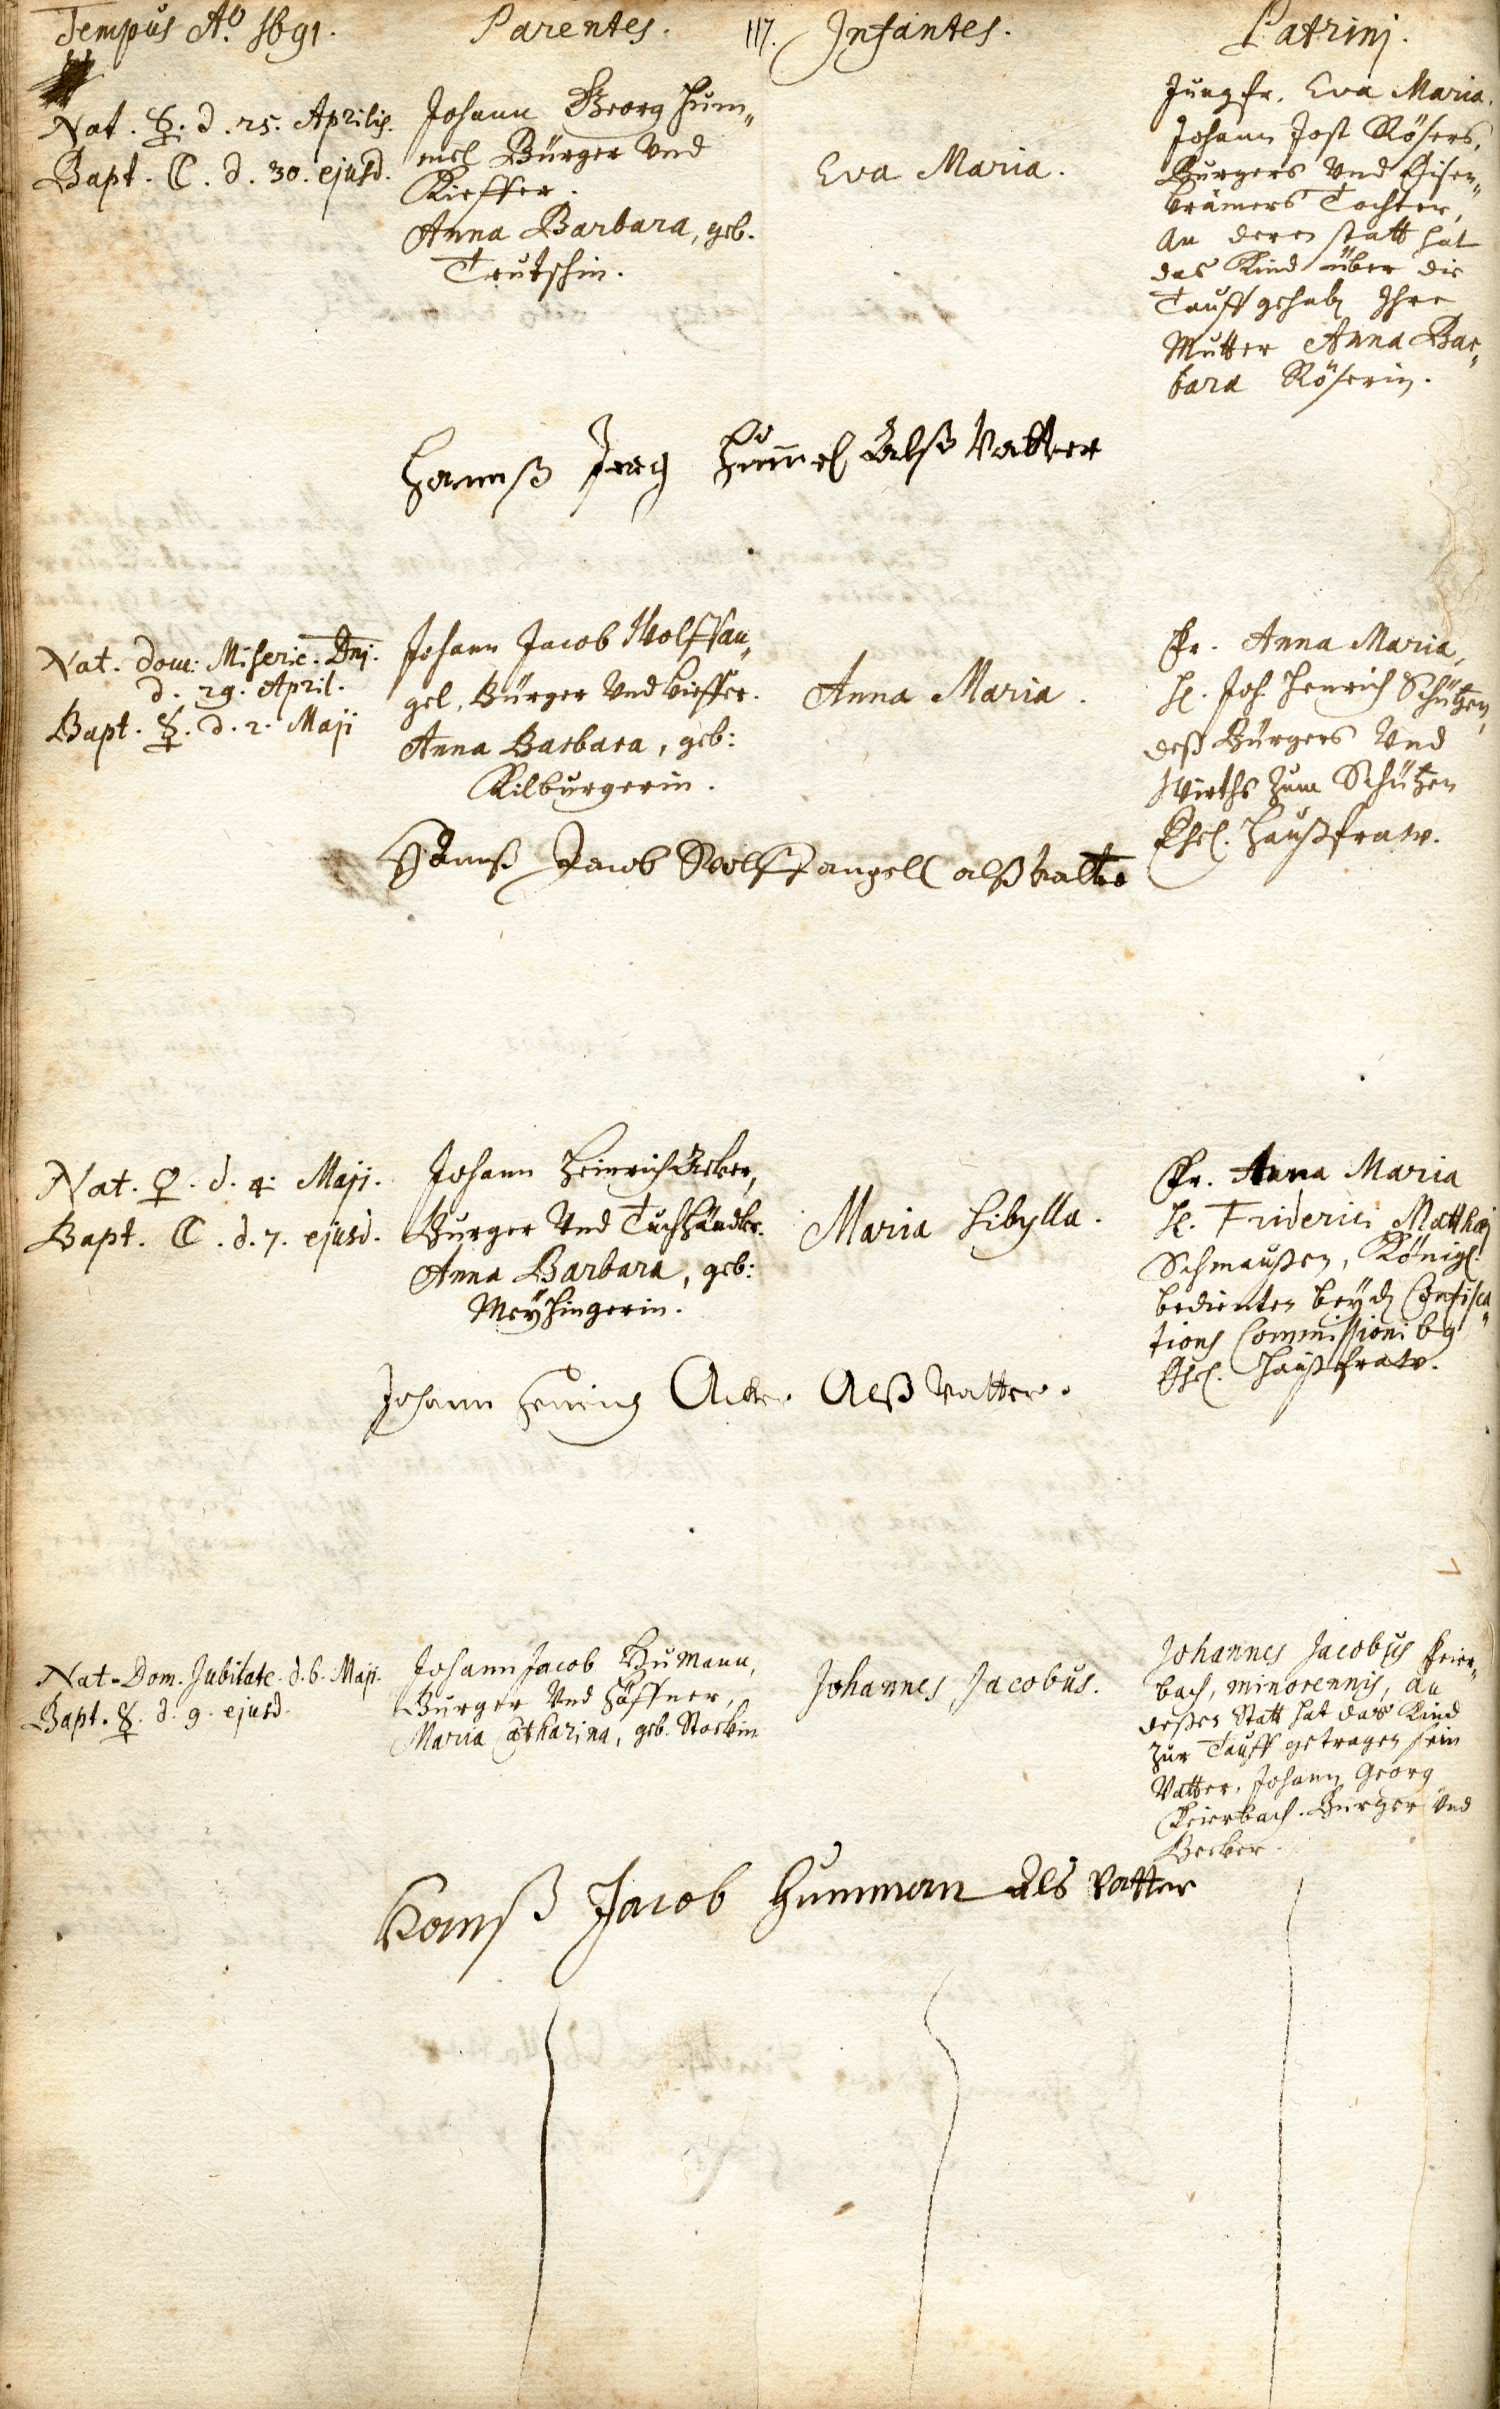 Tempus Aº 1691. Parentes. 117. Infantes. Patrinj.
Nat. ☿. d. 25. Aprilis.
Bapt. ☾. d. 30. ejusd.
Johann Georg Hum„
mel Bürger Und
Kieffer.
Anna Barbara, geb.
Trutschin.
Eva Maria.
Jungfr. Eva Maria,
Johann Jost Rösers,
Burgers Und Eisen„
krämers Tochter,
An deren statt hat
das Kind über die
Tauff gehabt Ihre
Mutter Anna Bar„
bara Röserin.
Hannß Jerg Hummel Alß Vatter
Nat. Dom: Miseric. Dnj.
d. 29. April.
Bapt. ☿. d. 2. Maji
Johann Jacob Wolffsan„
gel, Bürger Und kieffer.
Anna Barbara, geb:
Kilburgerin.
Anna Maria.
Fr. Anna Maria,
H. Joh. Henrich Schützen,
deß Bürgers Und
Wirths zum Schützen
Ehel. Haußfraw.
Hannß Jacob Wolffsangell alß Vatter
Nat. ♀. d. 4. Maji.
Bapt. ☾. d. 7. ejusd.
Johann Heinrich Acker,
Burger Und Tuchhändler.
Anna Barbara, geb:
Meyhingerin.
Maria Sibylla.
Fr. Anna Maria
H. Friderici Matthaej
Schmaußen, Königl.
bedienten bey der Confisca„
tions Commissionibg
Ehel. Haußfraw.
Johann Henrich Acker Alß Vatter.
Nat. Dom. Jubilate. d. 6. Maji.
Bapt. ☿. d. 9. ejusd.
Johann Jacob Humann,
Burger Und Häffner,
Maria Catharina, geb. Stockin
Johannes Jacobus.
Johannes Jacobus Feier„
bach, minorennis, An
deßen Statt hat das Kind
zur Tauff getragen sein
Vatter, Johann Georg
Feierbach. Burger Und
Becker.
Hannß Jacob Hummann Als Vatter